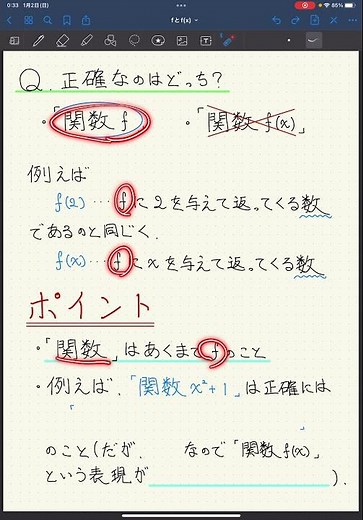 0:33 1月2日(日)
85%
fとf(x)
Q. 正確なのはどっち?
・「関数 f」 ・「関数 f(x)」
例えば
f(2) … fに2を与えて返ってくる数
であるのと同じく、
f(x) … fにxを与えて返ってくる数
ポイント
・「関数」はあくまでfのこと
・例えば、「関数 x²+1」は正確には
「
」
のこと(だが、 なので「関数 f(x)」
という表現が ).